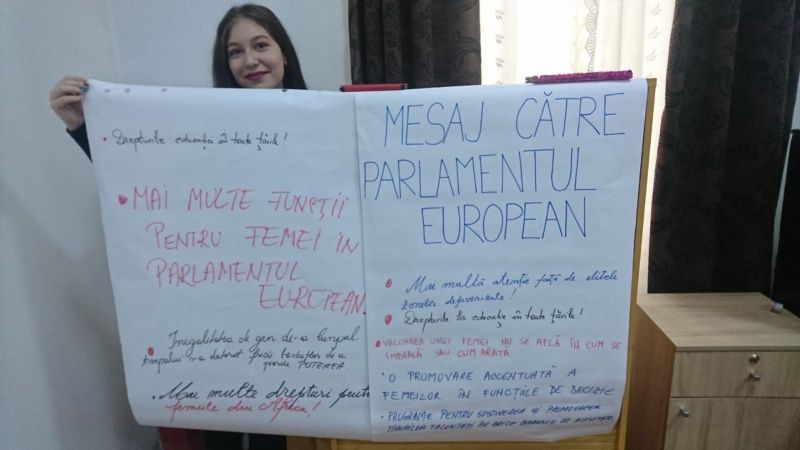 • Drepturile educației în toate țările!
• MAI MULTE FUNCȚII
PENTRU FEMEI ÎN
PARLAMENTUL
EUROPEAN!
• Inegalitatea de gen de-a lungul
timpului s-a datorat fricii bărbaților de a
pierde PUTEREA.
• Mai multe drepturi pentru
femeile din Africa!
MESAJ CĂTRE
PARLAMENTUL
EUROPEAN
• Mai multă atenție față de elitele
zonelor defavorizate!
• Drepturile la educație în toate țările!
• VALOAREA UNEI FEMEI NU SE AFLĂ ÎN CUM SE
ÎMBRACĂ SAU CUM ARATĂ
• O PROMOVARE ACCENTUATĂ A
FEMEILOR ÎN FUNCȚIILE DE DECIZIE.
• PROGRAME PENTRU SUSȚINEREA ȘI PROMOVAREA
TINERILOR TALENTAȚI ÎN ORICE DOMENIU DE ACTIVITATE